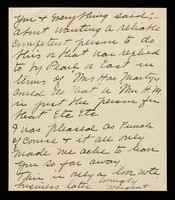 You & Everything said;-
about wanting a reliable
competent person to do
this & that was replied
to by Place in East in
terms of Mrs Har Martyn
could be that a Mrs H M
is just the person for
that Etc Etc
I was pleased as Punch
of course & it all only
made me ache to have
you so far away
This is only a love note
business later